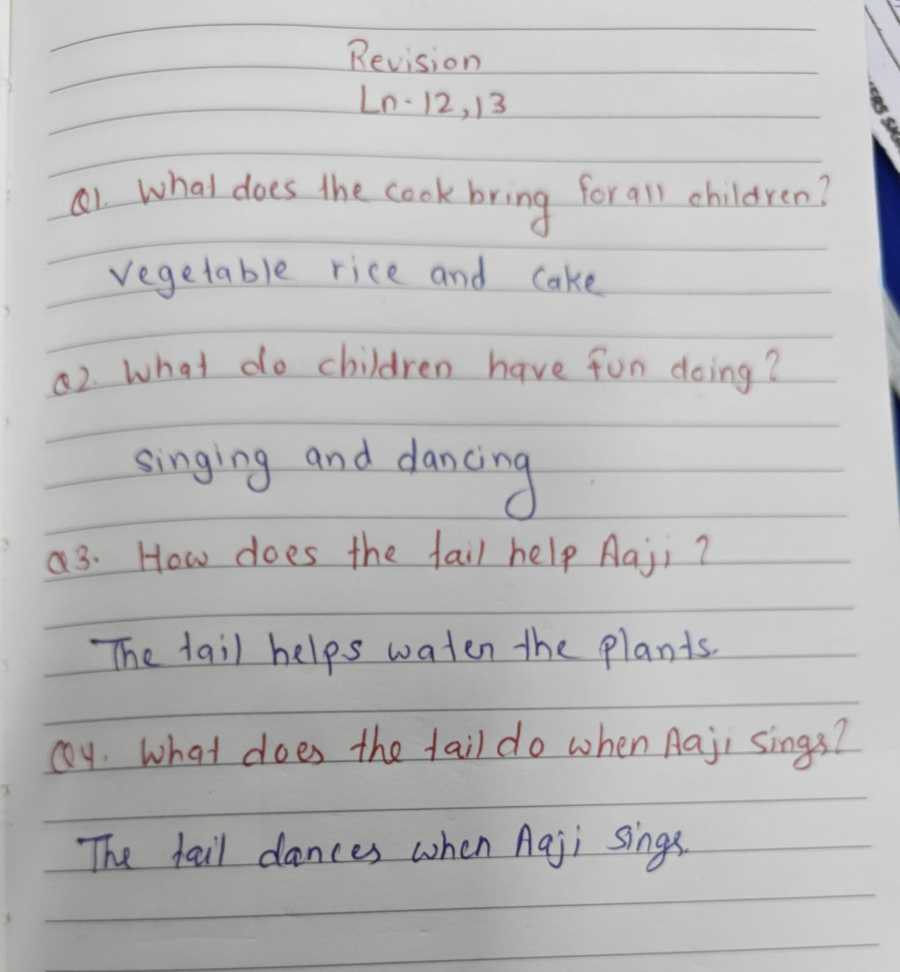 Revision
Ln-12,13
Q1. What does the cook bring for all children?
vegetable rice and cake
Q2. What do children have fun doing?
singing and dancing
Q3. How does the tail help Aaji?
The tail helps water the plants.
Q4. What does the tail do when Aaji sings?
The tail dances when Aaji sings.